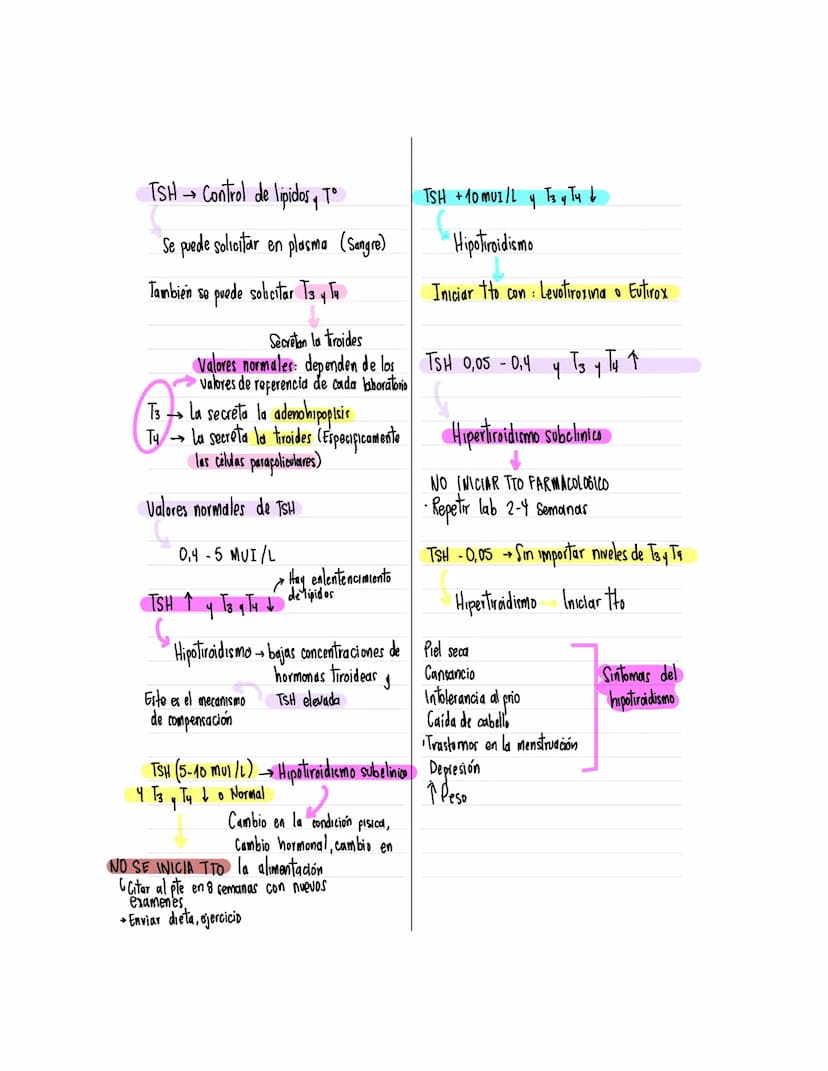 TSH → Control de lipidos y T°
Se puede solicitar en plasma (Sangre)
También se puede solicitar T3 y T4
Secretan la tiroides
Valores normales: dependen de los
valores de referencia de cada laboratorio
T3 → La secreta la adenohipofisis
T4 → La secreta la tiroides (Específicamente
las células parafoliculares)
Valores normales de TSH
0,4 - 5 MUI/L
→ Hay enlentencimiento
de lipidos
TSH ↑ y T3 y T4 ↓
Hipotiroidismo → bajas concentraciones de
hormonas tiroideas y
TSH elevada
Este es el mecanismo
de compensación
TSH (5-10 mUI/L) → Hipotiroidismo subclinico
y T3 y T4 ↓ o Normal
Cambio en la condición física,
Cambio hormonal, cambio en
la alimentación
NO SE INICIA TTO
Citar al pte en 8 semanas con nuevos
examenes
→ Enviar dieta, ejercicio
TSH +10 mUI/L y T3 y T4 ↓
Hipotiroidismo
Iniciar tto con: Levotiroxina o Eutirox
TSH 0,05 - 0,4 y T3 y T4 ↑
Hipertiroidismo subclinico
NO INICIAR TTO FARMACOLOGICO
· Repetir lab 2-4 Semanas
TSH - 0,05 → Sin importar niveles de T3 y T4
Hipertiroidismo → Iniciar tto
Piel seca
Cansancio
Intolerancia al frio
Caída de cabello
· Trastornos en la menstruación
Depresión
↑ Peso
Sintomas del
hipotiroidismo